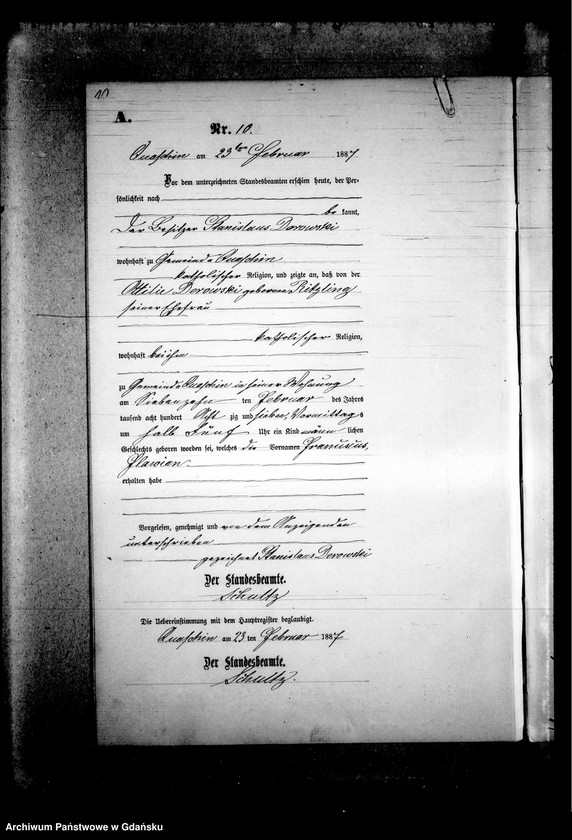 10
A.
Nr. 10.
Quaschin am 23ten Februar 1887
Vor dem unterzeichneten Standesbeamten erschien heute, der Per-
sönlichkeit nach
be kannt,
Der Besitzer Stanislaus Dorowski
wohnhaft zu Gemeinde Quaschin
katholischer Religion, und zeigte an, daß von der
Ottilie Dorowski geborenen Ritzling
seiner Ehefrau
katholischer Religion,
wohnhaft bei ihm
zu Gemeinde Quaschin in seiner Wohnung
am Siebenzehn ten Februar des Jahres
tausend acht hundert Acht zig und sieben, Vormittags
um halb Fünf Uhr ein Kind männ lichen
Geschlechts geboren worden sei, welches die Vornamen
erhalten habe
Vorgelesen, genehmigt und von dem Anzeigenden
unterschrieben
gezeichnet Stanislaus Dorowski
Der Standesbeamte.
Schultz
Die Uebereinstimmung mit dem Hauptregister beglaubigt.
Quaschin am 23 ten Februar 1887
Der Standesbeamte.
Schultz.
Archiwum Państwowe w Gdańsku